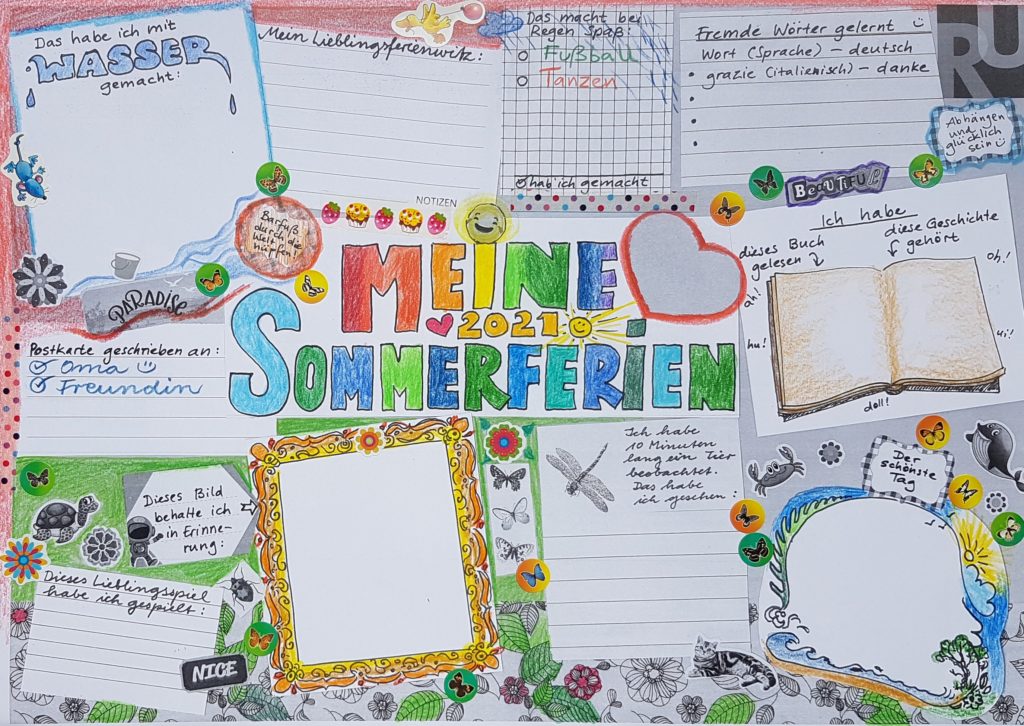 Das habe ich mit
WASSER
gemacht:
Mein Lieblingsferienwitz:
Das macht bei
Regen Spaß:
Fußball
Tanzen
hab ich gemacht
Fremde Wörter gelernt
Wort (Sprache) – deutsch
grazie (italienisch) – danke
RU
Abhängen
und
glücklich
sein
BEAUTIFUL
NOTIZEN
Barfuß
durch die
Welt
hüpfen!
PARADISE
MEINE
2021
SOMMERFERIEN
Ich habe
dieses Buch
gelesen
diese Geschichte
gehört
oh!
ah!
hu!
ui!
doll!
Postkarte geschrieben an:
Oma
Freundin
Dieses Bild
behalte ich
in Erinne-
rung:
Ich habe
10 Minuten
lang ein Tier
beobachtet.
Das habe
ich gesehen:
Der
schönste
Tag
Dieses Lieblingsspiel
habe ich gespielt:
NICE